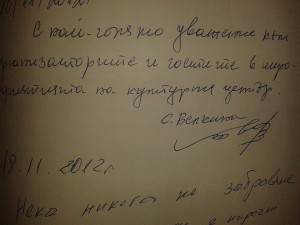 С най-горещо уважение към
организаторите и гостите в меро-
приятията на културния център.
С. Велкина
18.11.2012г.
Нека никога не забравяме